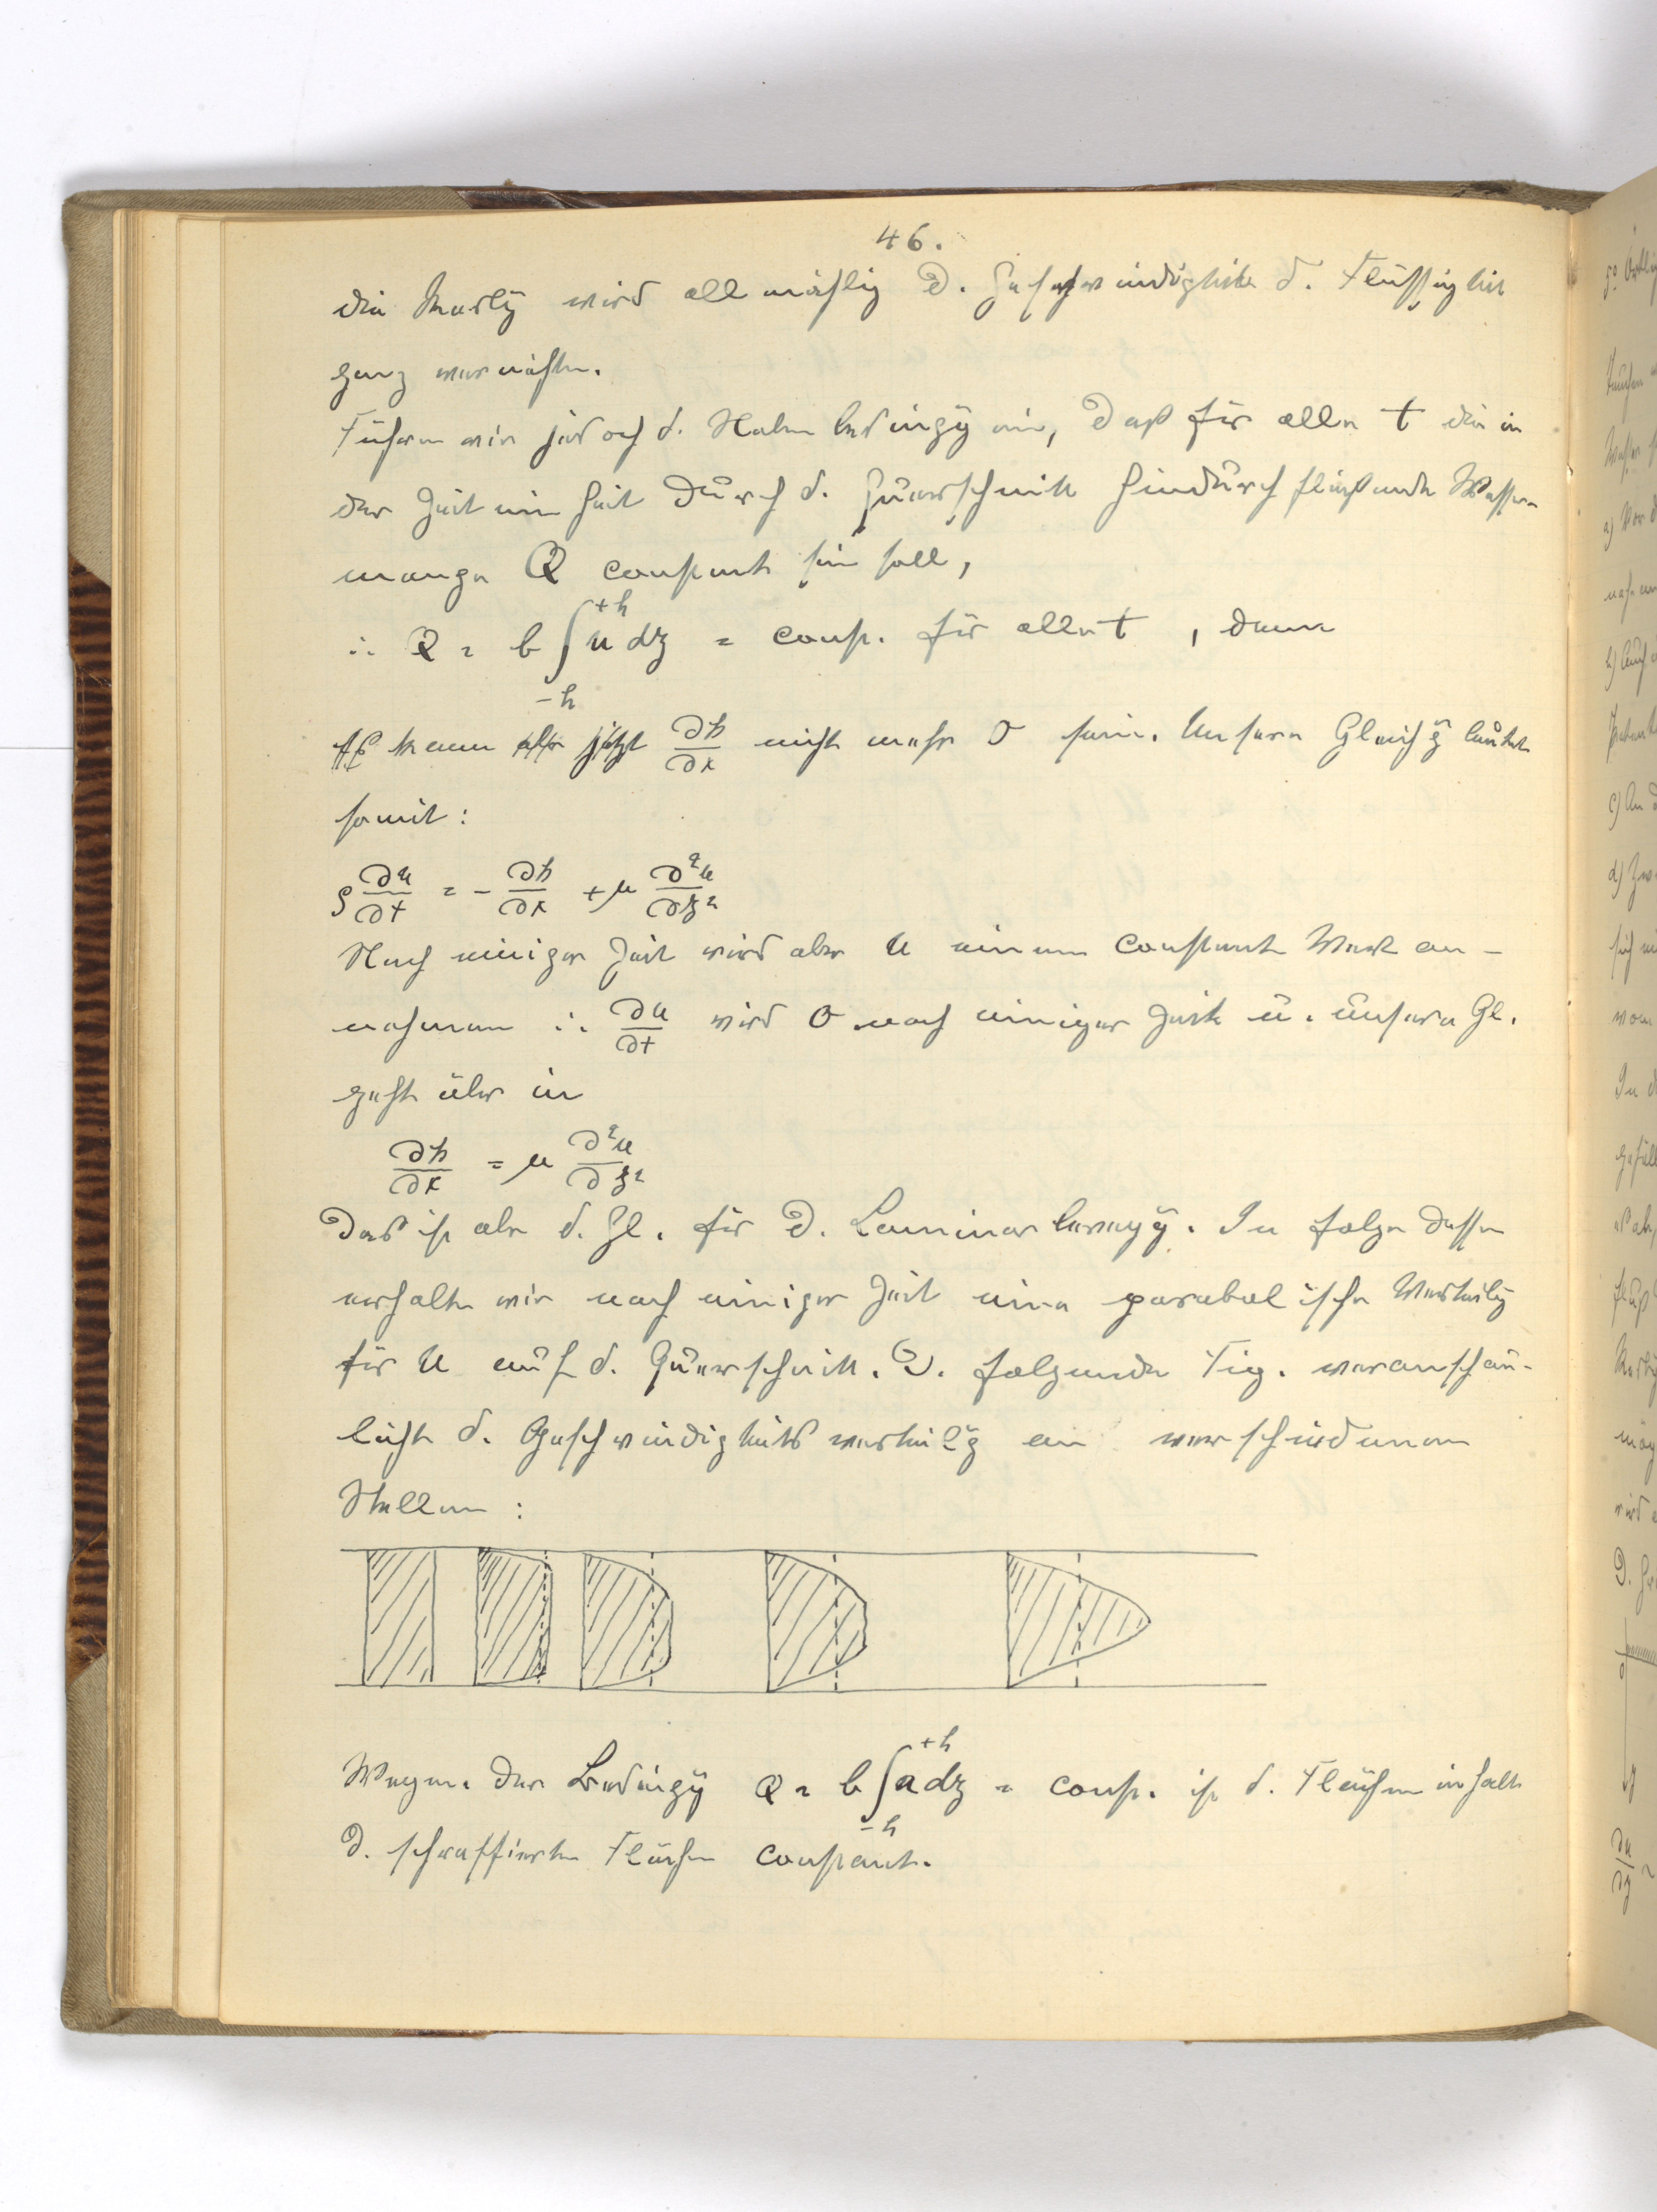 46.
die Reibg wird allmählig d. Geschwindigkeit d. Flüssigkeit
ganz vernichten.
Führen wir jedoch d. Nebenbedingg ein, daß für alle t die in
der Zeiteinheit durch d. Querschnitt hindurchfließende Wasser-
menge Q constant sein soll,
∴ Q = b ∫_{-h}^{+h} u dz = const. für alle t , dann
kann jetzt ∂p/∂x nicht mehr 0 sein. Unsere Gleichg lautet
somit:
ρ ∂u/∂t = - ∂p/∂x + μ ∂²u/∂z²
Nach einiger Zeit wird aber u einen constant Wert an-
nehmen ∴ ∂u/∂t wird 0 nach einiger Zeit u. unsere Gl.
geht über in
∂p/∂x = μ ∂²u/∂z²
Das ist aber d. Gl. für d. Laminarbewegg. In folge dessen
erhalten wir nach einiger Zeit eine parabolische Verteilg
für u auf d. Querschnitt. D. folgende Fig. veranschau-
licht d. Geschwindigkeitsverteilg an verschiedenen
Stellen :
Wegen der Bedingg Q = b ∫_{-h}^{+h} u dz = const. ist d. Flächeninhalt
d. schraffierten Flächen constant.